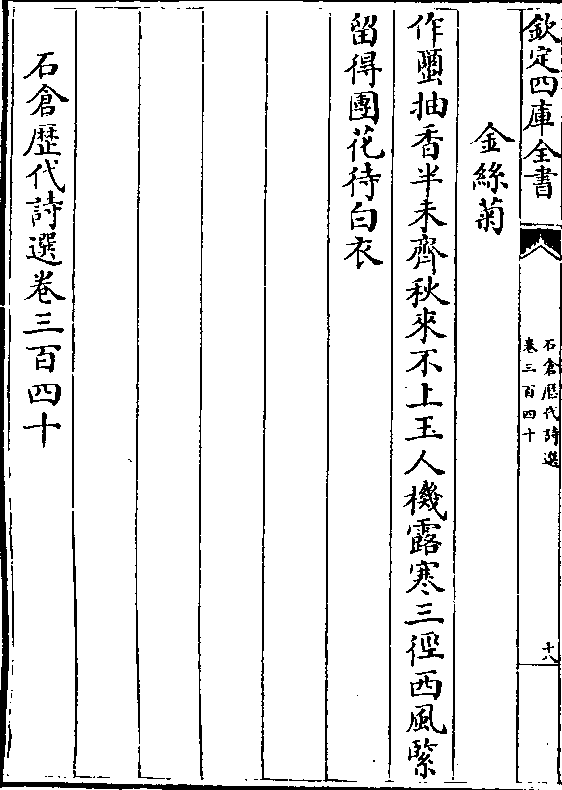 欽定四庫全書
石倉歷代詩選
卷三百四十
十八
金絲菊
作蠒抽香半未齊秋來不上玉人機露寒三徑西風緊
留得團花待白衣
石倉歷代詩選卷三百四十